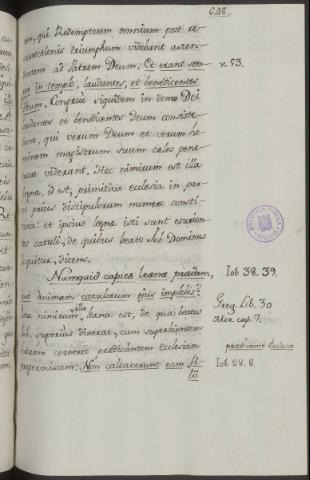 608.
rem, qui Redemptorem omnium post re-
surrectionis triumphum videbant ascen-
dentem ad Patrem Deum. Et erant sem-
per in templo, laudantes, et benedicentes
Deum. Congruè siquidem in domo Dei
laudantes et benedicentes Deum consiste-
bant, qui verum Deum et verum ho-
minem magistrum suum cælos pene-
trare viderant. Hæc nimirum est illa
leæna, id est, primitiva ecclesia in par-
vo prius discipulorum numero consti-
tuta: et ipsius leænæ isti sunt esurien-
tes catuli, de quibus beato Job Dominus
loquitur, dicens.
Numquid capies leænæ prædam,
aut animam catulorum ejus implebis?
Hæc nimirum illa leæna est, de qua beatus
Job superius dixerat, cum superbientem
Judæam cerneret prædicantem Ecclesiam
prætermissam: Non calcaverunt eam fi-
lii
v. 53.
Iob 38. 39.
Greg. Lib. 30
Mor. cap. 7.
prædicante Ecclesia
Iob 28. 8.